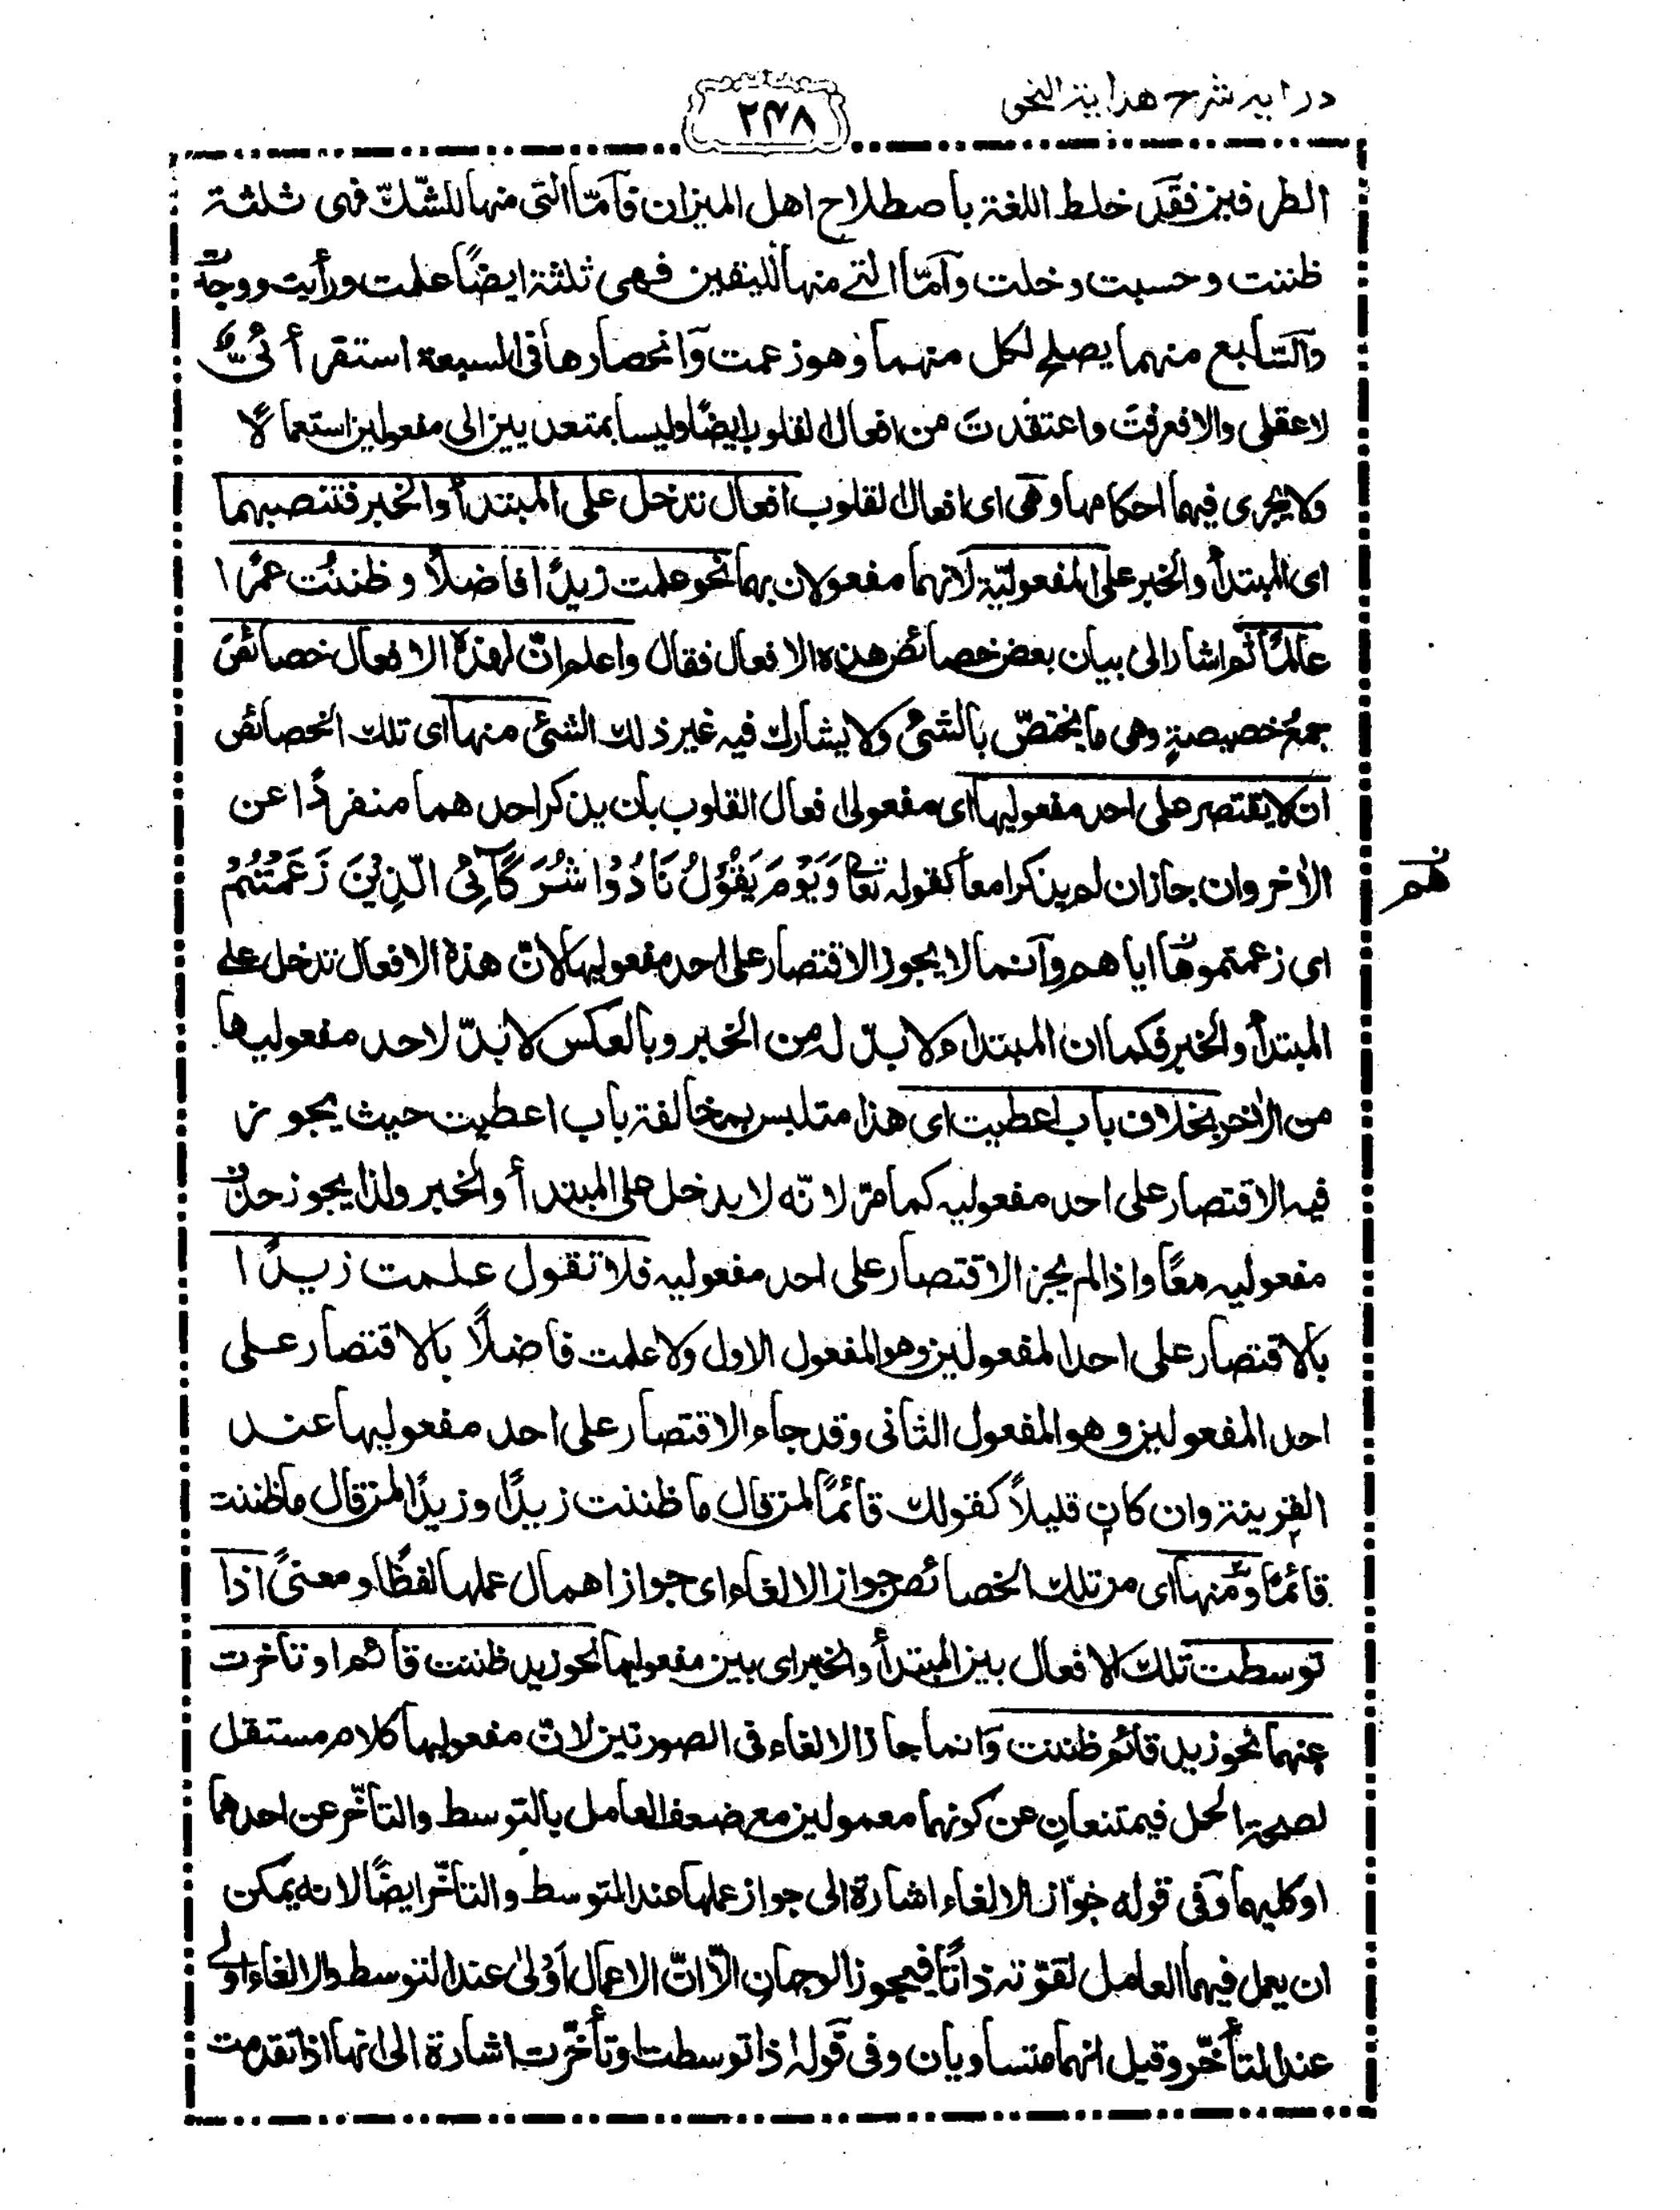 درایہ شرح هدایۃ النحو
۲۴۸
الطرفین فقد خلط اللغۃ باصطلاح اهل المیزان فآمّا التی منها للشّکّ فهی ثلثۃ
ظننت وحسبت وخلت وآمّا التے منها للیقین فهی ثلثۃ ایضًا علمت ورأیت ووجدت
والسّابع منهما یصلح لکل منهما وهو زعمت وانحصارها فی السبعۃ استقرائی
لا عقلی والا فعرفت واعتقدت من افعال القلوب ایضًا ولیسا بمتعدیین الی مفعولین استعمالًا
ولا یجری فیهما احکامها وهی ای افعال القلوب افعال تدخل علی المبتدأ والخبر فتنصبهما
ای المبتدأ والخبر علی المفعولیّۃ لانهما مفعولان بهما نحو علمت زیدًا فاضلًا وظننتُ عمرًا
عالمًا ثم اشار الی بیان بعض خصائص هذه الافعال فقال واعلم انّ لهذه الافعال خصائص
جمع خصیصۃٍ وهی ما یختصّ بالشئ ولا یشارک فیه غیر ذلک الشئ منها ای تلک الخصائص
ان لا یقتصر علی احد مفعولیها ای مفعولی افعال القلوب بان یذکر احدهما منفردًا عن
الأخر وان جاز ان لم یذکرا معاً کقوله تعالٰی وَیَوْمَ یَقُوْلُ نَادُوْا شُرَکَآئِیَ الَّذِیْنَ زَعَمْتُمْ
ای زعمتموهم ایاهم وآنما لا یجوز الاقتصار علی احد مفعولیها لانّ هذه الافعال تدخل علے
المبتدأ والخبر فکما ان المبتداء لا بدّ له من الخبر وبالعکس لا بدّ لاحد مفعولیها
من الأخر بخلاف باب اعطیت ای هذا متلبس بمخالفۃ باب اعطیت حیث یجوز
فیه الاقتصار علی احد مفعولیه کما مرّ لانّه لا یدخل علی المبتدأ والخبر ولذا یجوز حذف
مفعولیه معًا واذا لم یجز الاقتصار علی احد مفعولیه فلا تقول علمت زیدًا
بالاقتصار علی احد المفعولین وهو المفعول الاول ولا علمت فاضلًا بالاقتصار علی
احد المفعولین وهو المفعول الثانی وقد جاء الاقتصار علی احد مفعولیها عند
القرینۃ وان کان قلیلًا کقولک قائمًا لمن قال ما ظننت زیدًا وزیدًا لمن قال ما ظننت
قائمًا ومنها ای من تلک الخصائص جواز الالغاء ای جواز اهمال عملها لفظًا ومعنیً اذا
توسطت تلک الافعال بین المبتدأ والخبر ای بین مفعولیها نحو زید ظننت قائم او تأخرت
عنهما نحو زید قائم ظننت وانما جاز الالغاء فی الصورتین لانّ مفعولیها کلام مستقل
لصحۃ الحمل فیمتنعان عن کونهما معمولین مع ضعف العامل بالتوسط والتأخّر عن احدهما
او کلیهما وفی قوله جواز الالغاء اشارۃ الی جواز عملها عند التوسط والتأخّر ایضًا لانه یمکن
ان یعمل فیهما العامل لقوّته ذاتًا فیجوز الوجهان الّا انّ الاعمال اَوْلٰی عند التوسط والالغاء اولٰے
عند التأخّر وقیل انهما متساویان وفی قوله اذا توسطت او تأخّرت اشارۃ الی انها اذا تقدمت